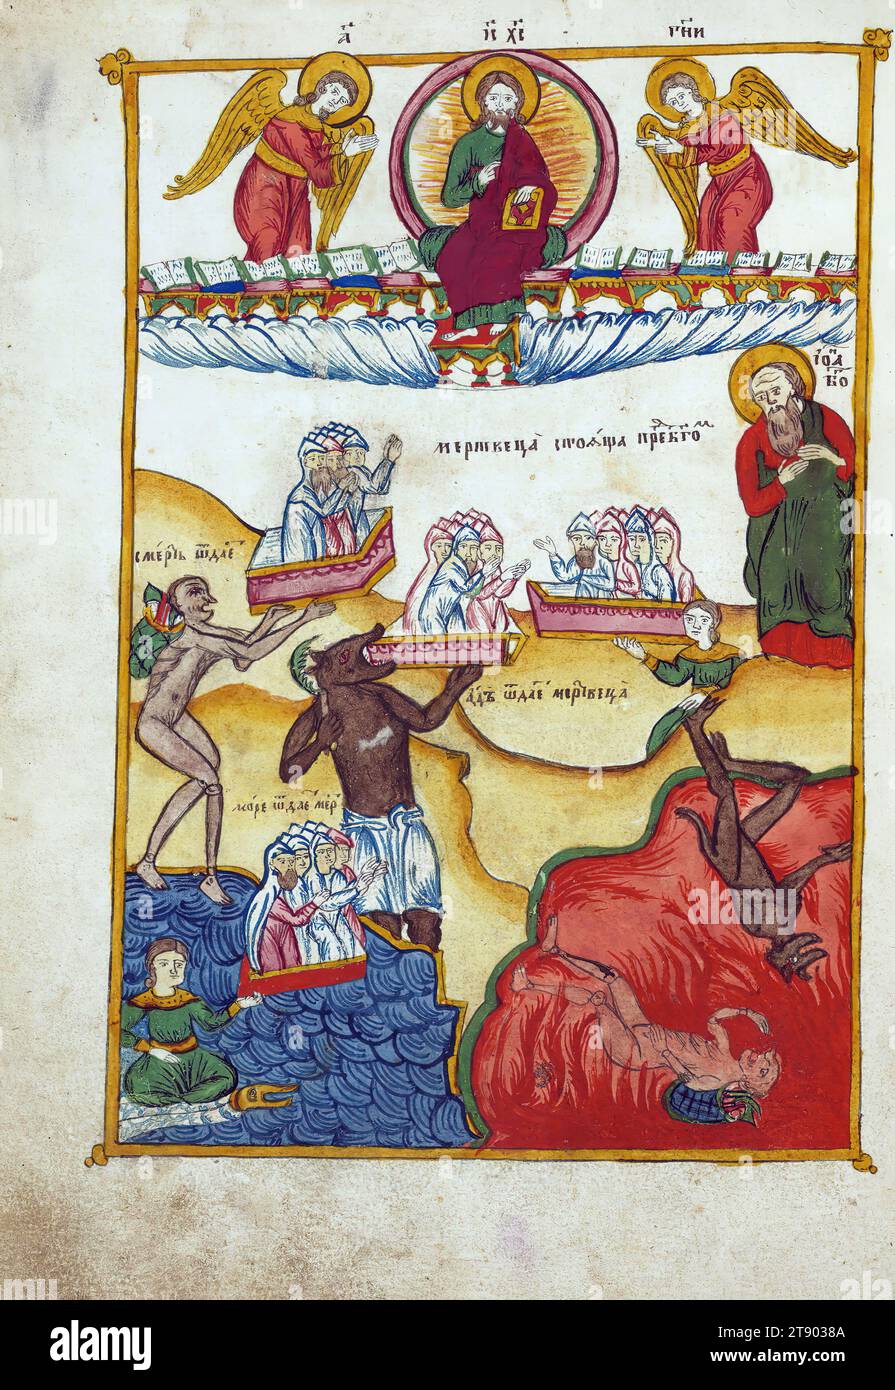 А҃ І҃С Х҃С ГН҃И
ІѠ҃А
Б҃О
мертвеца стоѧща пре бг҃ом
смерть ѿдае
адъ ѿдае мертвеца
море ѿдае мер
alamy
Image ID: 2T9038A
www.alamy.com